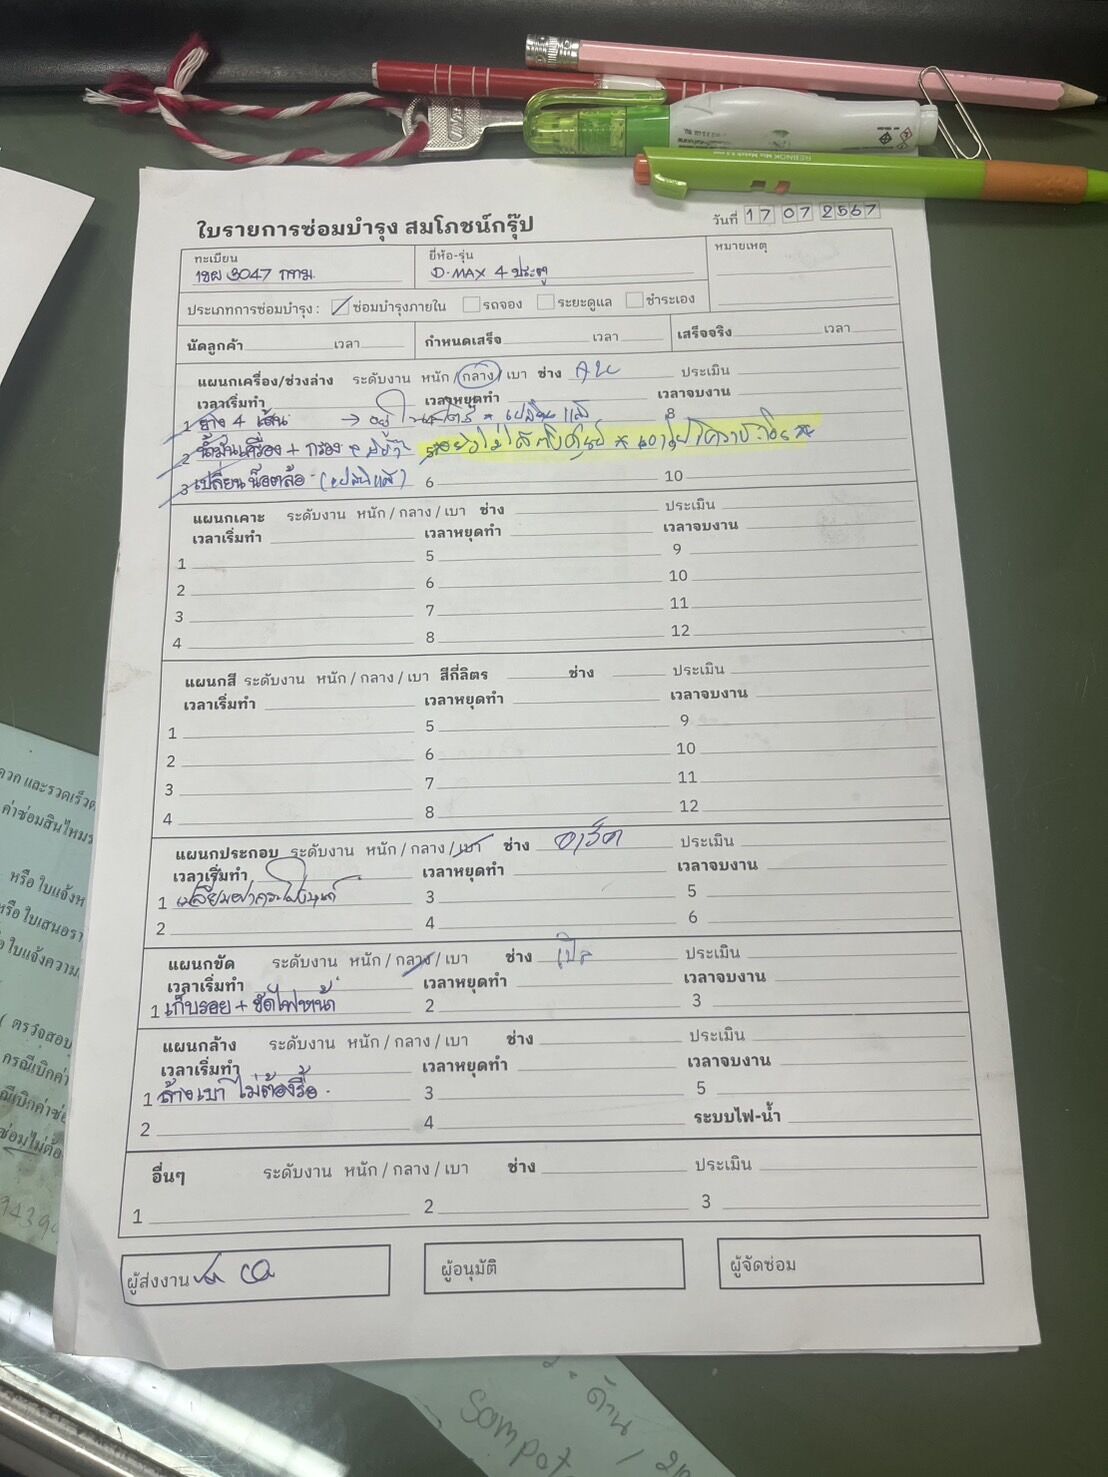 ใบรายการซ่อมบำรุง สมโภชน์กรุ๊ป
วันที่ 17 07 2567
ทะเบียน
ยี่ห้อ-รุ่น
หมายเหตุ
3047 กทม.
D-MAX 4 ประตู
ประเภทการซ่อมบำรุง : ซ่อมบำรุงภายใน รถจอง ระยะดูแล ชำระเอง
นัดลูกค้า เวลา กำหนดเสร็จ เวลา เสร็จจริง เวลา
แผนกเครื่อง/ช่วงล่าง ระดับงาน หนัก / กลาง / เบา ช่าง ประเมิน
เวลาเริ่มทำ เวลาหยุดทำ เวลาจบงาน
1 ยาง 4 เส้น → อยู่ * เปลี่ยนแล้ว 8
2 น้ำมันเครื่อง + กรอง
3 เปลี่ยนน็อตล้อ (เปลี่ยนแล้ว) 6 10
แผนกเคาะ ระดับงาน หนัก / กลาง / เบา ช่าง ประเมิน
เวลาเริ่มทำ เวลาหยุดทำ เวลาจบงาน
1 5 9
2 6 10
3 7 11
4 8 12
แผนกสี ระดับงาน หนัก / กลาง / เบา สีกี่ลิตร ช่าง ประเมิน
เวลาเริ่มทำ เวลาหยุดทำ เวลาจบงาน
1 5 9
2 6 10
3 7 11
4 8 12
แผนกประกอบ ระดับงาน หนัก / กลาง / เบา ช่าง ประเมิน
เวลาเริ่มทำ เวลาหยุดทำ เวลาจบงาน
1 3 5
2 4 6
แผนกขัด ระดับงาน หนัก / กลาง / เบา ช่าง ประเมิน
เวลาเริ่มทำ เวลาหยุดทำ เวลาจบงาน
1 เก็บรอย + ขัดไฟหน้า 2 3
แผนกล้าง ระดับงาน หนัก / กลาง / เบา ช่าง ประเมิน
เวลาเริ่มทำ เวลาหยุดทำ เวลาจบงาน
1 ล้างเบา ไม่ต้องรื้อ 3 5
2 4 ระบบไฟ-น้ำ
อื่นๆ ระดับงาน หนัก / กลาง / เบา ช่าง ประเมิน
1 2 3
ผู้ส่งงาน ผู้อนุมัติ ผู้จัดซ่อม